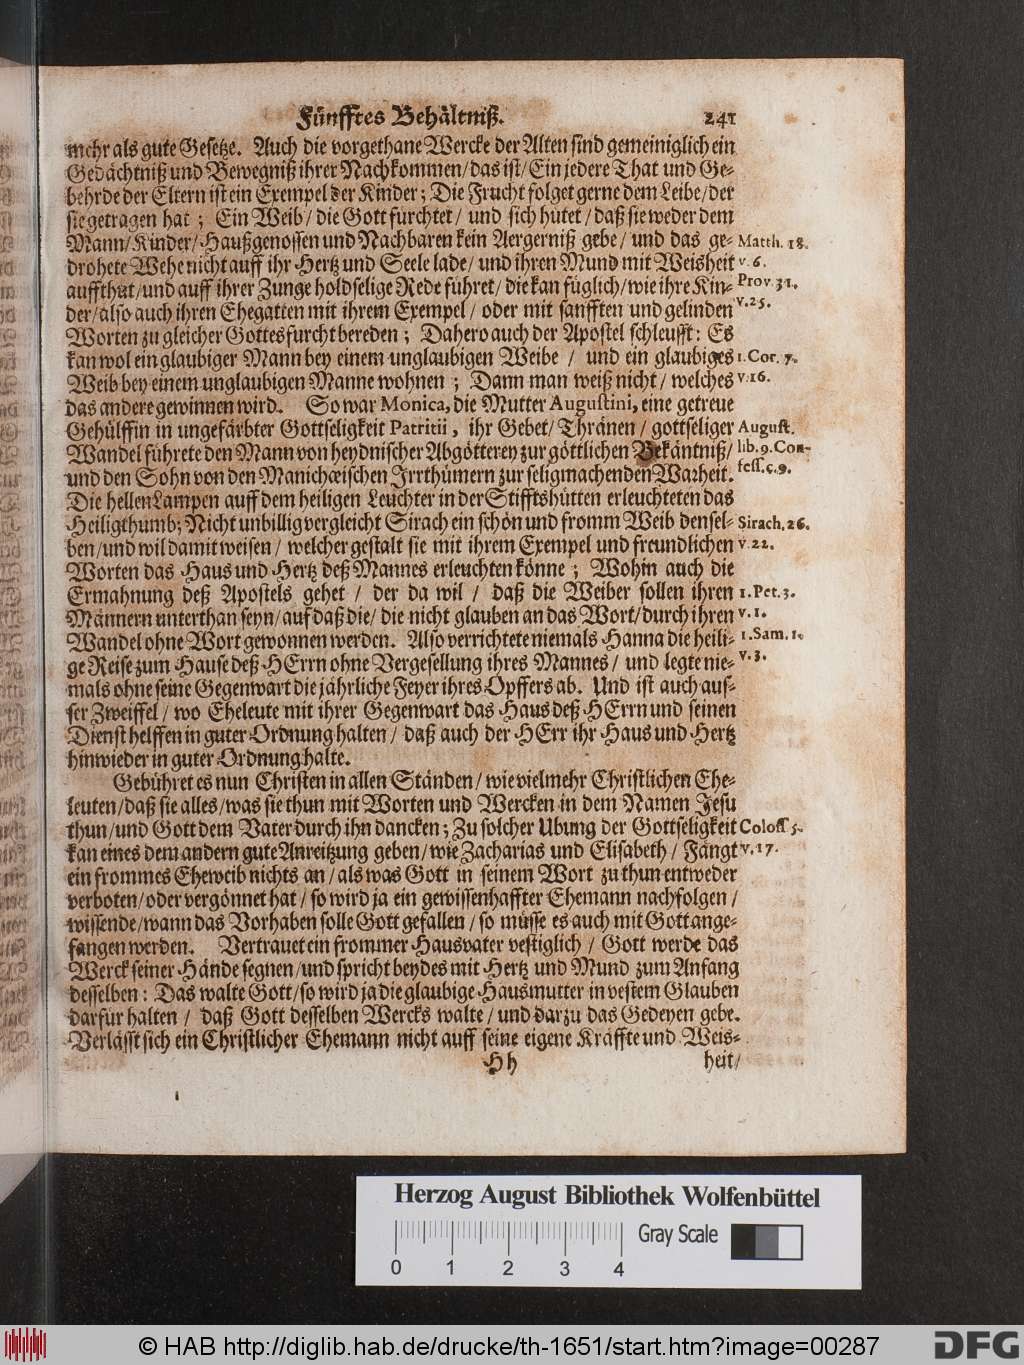 Fünfftes Behältniß. 241
mehr als gute Gesetze. Auch die vorgethane Wercke der Alten sind gemeiniglich ein
Gedächtniß und Bewegniß ihrer Nachkommen/ das ist/ Ein jedere That und Ge-
behrde der Eltern ist ein Exempel der Kinder; Die Frucht folget gerne dem Leibe/ der
sie getragen hat; Ein Weib/ die Gott fürchtet/ und sich hütet/ daß sie weder dem
Mann/ Kinder/ Haußgenossen und Nachbaren kein Aergerniß gebe/ und das ge- Matth. 18.
drohete Wehe nicht auff ihr Hertz und Seele lade/ und ihren Mund mit Weisheit v. 6.
auffthut/ und auff ihrer Zunge holdselige Rede führet/ die kan füglich/ wie ihre Kin- Prov. 31.
der/ also auch ihren Ehegatten mit ihrem Exempel/ oder mit sanfften und gelinden v. 25.
Worten zu gleicher Gottesfurcht bereden; Dahero auch der Apostel schleusst: Es
kan wol ein glaubiger Mann bey einem unglaubigen Weibe/ und ein glaubiges 1. Cor. 7.
Weib bey einem unglaubigen Manne wohnen; Dann man weiß nicht/ welches v. 16.
das andere gewinnen wird. So war Monica, die Mutter Augustini, eine getreue
Gehülffin in ungefärbter Gottseligkeit Patritii, ihr Gebet/ Thränen/ gottseliger August.
Wandel führete den Mann von heydnischer Abgötterey zur göttlichen Bekäntniß/ lib. 9. Con-
und den Sohn von den Manichæischen Irrthümern zur seligmachenden Warheit. fess. c. 9.
Die hellen Lampen auff dem heiligen Leuchter in der Stifftshütten erleuchteten das
Heiligthumb; Nicht unbillig vergleicht Sirach ein schön und fromm Weib densel- Sirach. 26.
ben/ und wil damit weisen/ welcher gestalt sie mit ihrem Exempel und freundlichen v. 22.
Worten das Haus und Hertz deß Mannes erleuchten könne; Wohin auch die
Ermahnung deß Apostels gehet/ der da wil/ daß die Weiber sollen ihren 1. Pet. 3.
Männern unterthan seyn/ auf daß die/ die nicht glauben an das Wort/ durch ihren v. 1.
Wandel ohne Wort gewonnen werden. Also verrichtete niemals Hanna die heili- 1. Sam. 1.
ge Reise zum Hause deß HErrn ohne Vergesellung ihres Mannes/ und legte nie- v. 3.
mals ohne seine Gegenwart die jährliche Feyer ihres Opffers ab. Und ist auch aus-
ser Zweiffel/ wo Eheleute mit ihrer Gegenwart das Haus deß HErrn und seinen
Dienst helffen in guter Ordnung halten/ daß auch der HErr ihr Haus und Hertz
hinwieder in guter Ordnung halte.
Gebühret es nun Christen in allen Ständen/ wie vielmehr Christlichen Ehe-
leuten/ daß sie alles/ was sie thun mit Worten und Wercken in dem Namen Jesu
thun/ und Gott dem Vater durch ihn dancken; Zu solcher Ubung der Gottseligkeit Coloss 5.
kan eines dem andern gute Anreitzung geben/ wie Zacharias und Elisabeth/ Fängt v. 17.
ein frommes Eheweib nichts an/ als was Gott in seinem Wort zu thun entweder
verboten/ oder vergönnet hat/ so wird ja ein gewissenhaffter Ehemann nachfolgen/
wissende/ wann das Vorhaben solle Gott gefallen/ so müsse es auch mit Gott ange-
fangen werden. Vertrauet ein frommer Hausvater vestiglich/ Gott werde das
Werck seiner Hände segnen/ und spricht beydes mit Hertz und Mund zum Anfang
desselben: Das walte Gott/ so wird ja die glaubige Hausmutter in vestem Glauben
darfür halten/ daß Gott desselben Wercks walte/ und darzu das Gedeyen gebe.
Verlässt sich ein Christlicher Ehemann nicht auff seine eigene Kräffte und Weis-
Hh heit/
Herzog August Bibliothek Wolfenbüttel
Gray Scale
0 1 2 3 4
© HAB http://diglib.hab.de/drucke/th-1651/start.htm?image=00287
DFG